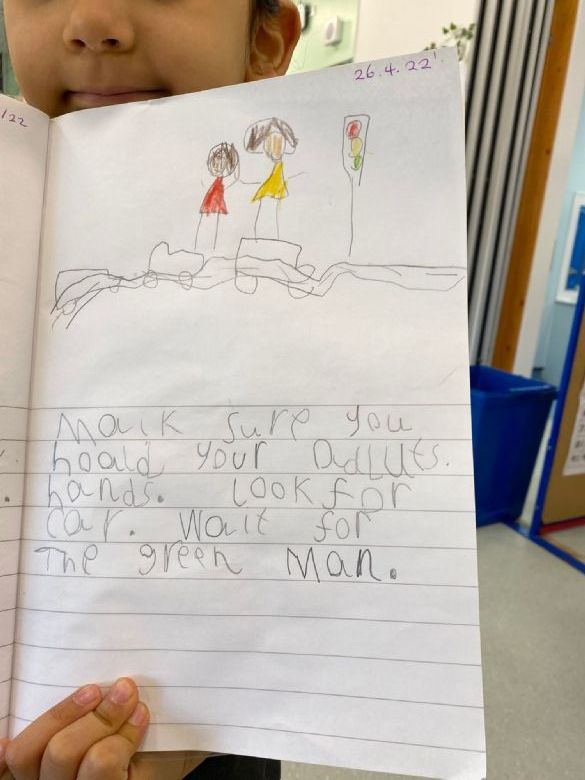 /22
26.4.22
Maik sure you
hoald your Adluts.
hands. Look for
car. Wait for
The green Man.